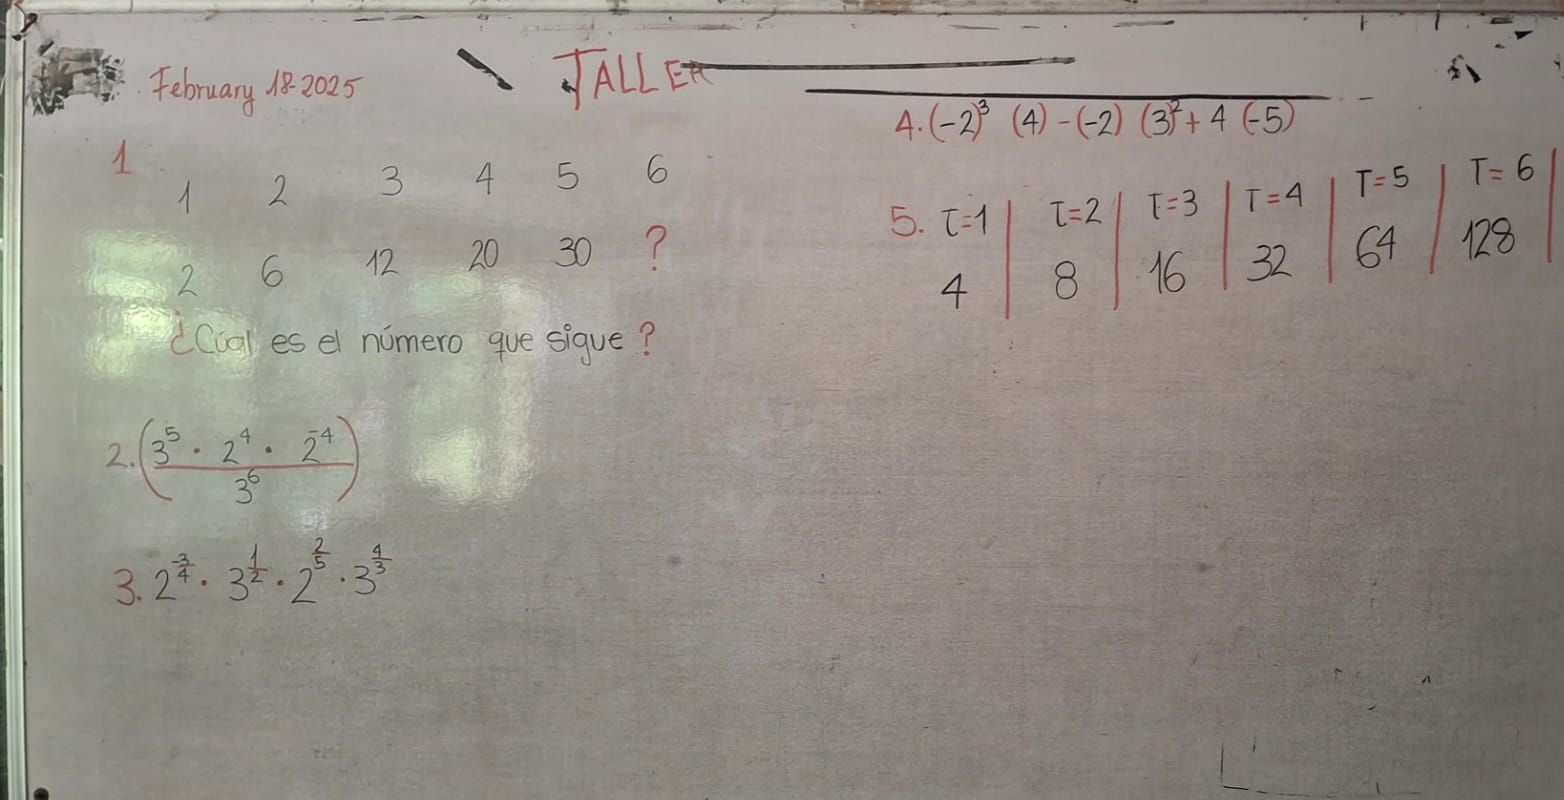 February 18-2025
TALLER
1
1 2 3 4 5 6
2 6 12 20 30 ?
¿Cúal es el número que sigue?
2. (3^5 · 2^4 · 2^-4 / 3^6)
3. 2^-3/4 · 3^1/2 · 2^2/5 · 3^4/3
4. (-2)^3 (4) - (-2) (3)^2 + 4 (-5)
5. T=1 | T=2 | T=3 | T=4 | T=5 | T=6 |
4 | 8 | 16 | 32 | 64 | 128 |